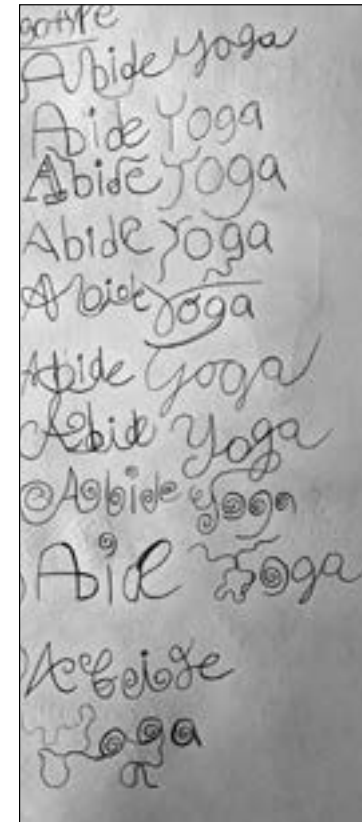 gotype
Abide Yoga
Abide Yoga
Abide Yoga
Abide Yoga
Abide Yoga
Abide Yoga
Abide Yoga
Abide Yoga
Abide Yoga
Abide
Yoga